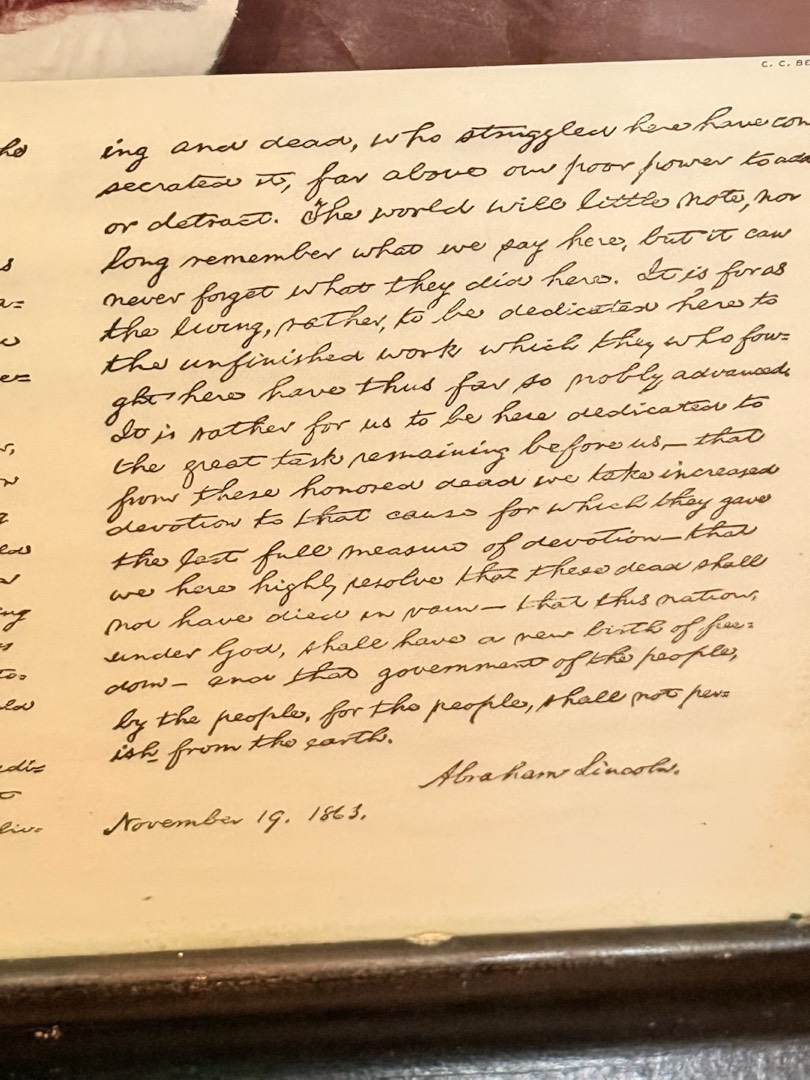 C. C. BE
ho
s
a=
w
er=
ing and dead, who struggled here have con
secrated it, far above our poor power to add
or detract. The world will little note, nor
long remember what we say here, but it can
never forget what they did here. It is for us
the living, rather, to be dedicated here to
the unfinished work which they who fou=
ght here have thus far so nobly advanced.
It is rather for us to be here dedicated to
the great task remaining before us— that
from these honored dead we take increased
devotion to that cause for which they gave
the last full measure of devotion— that
we here highly resolve that these dead shall
not have died in vain— that this nation,
under God, shall have a new birth of free=
dom— and that government of the people,
by the people, for the people, shall not per=
ish from the earth.
Abraham Lincoln.
November 19. 1863.
ing
to=
edi=
liv=